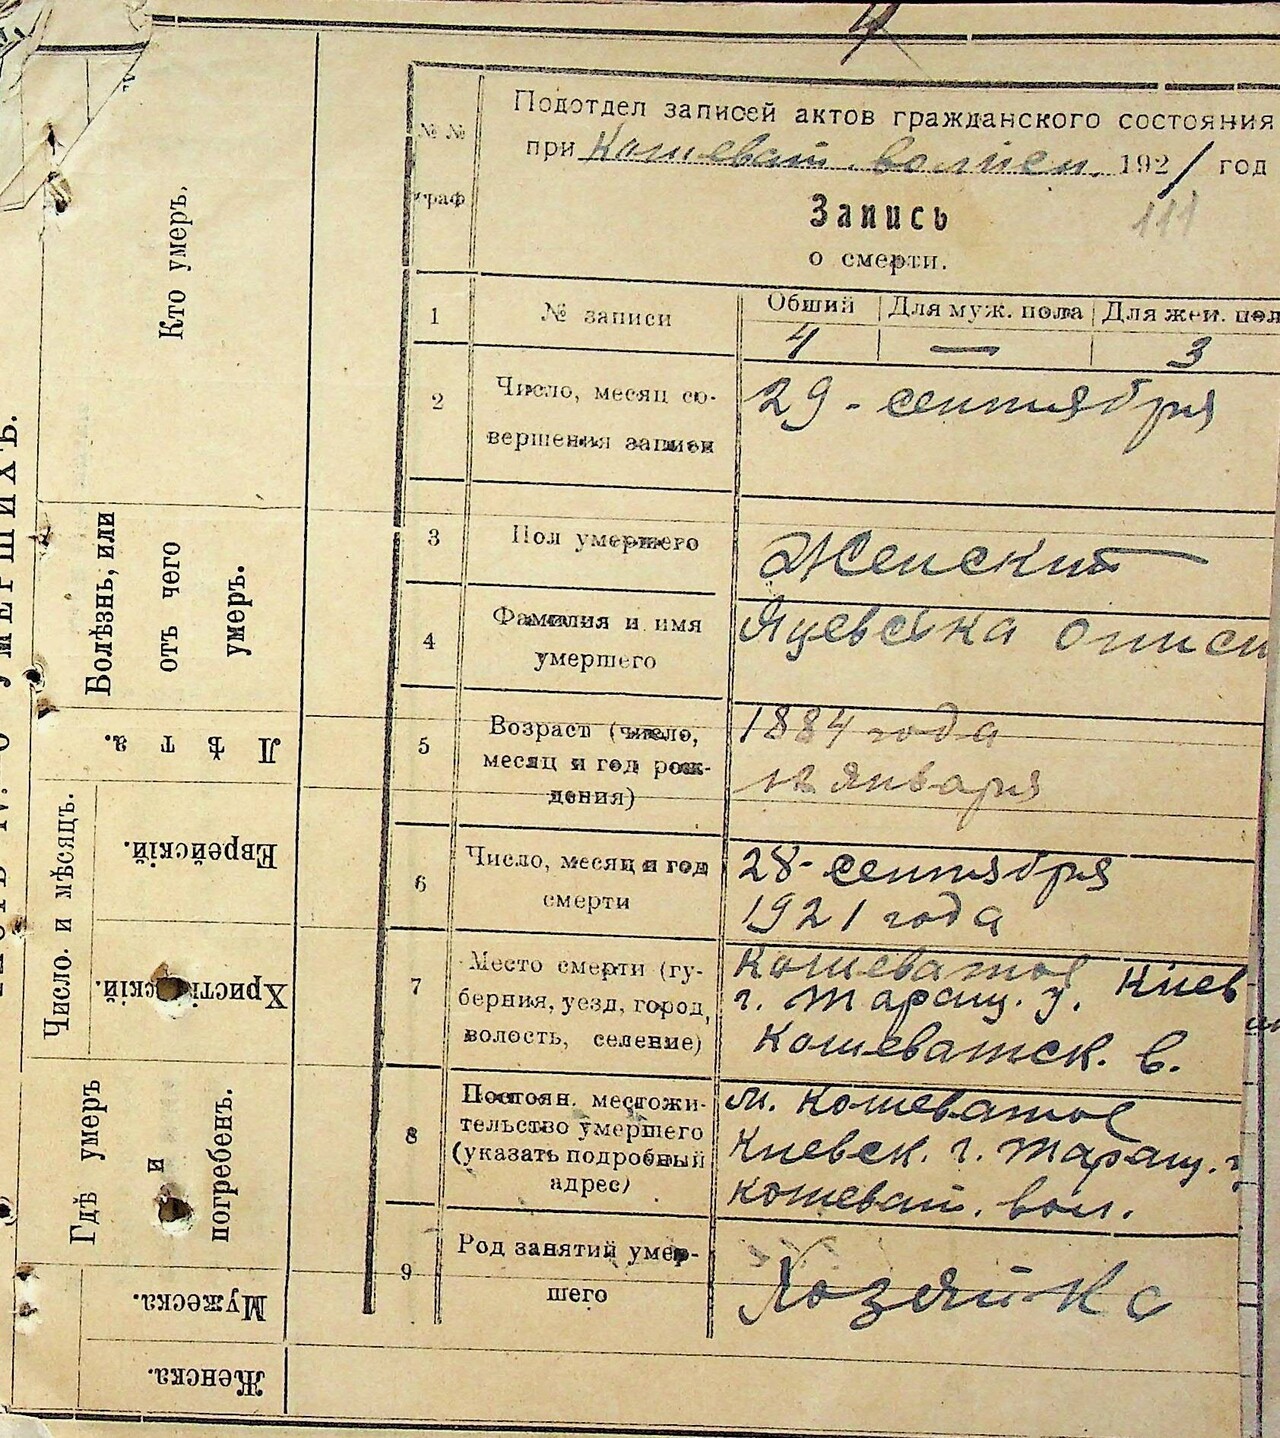 4
Подотдел записей актов гражданского состояния
при Кошеват. волисп. 1921 год
111
Запись
о смерти.
№ №
граф
1 № записи
Обший Для муж. пола Для жен. пол
4 — 3
2 Число, месяц со-
вершения записи
29 - сентября
3 Пол умершего
Женский
4 Фамилия и имя
умершего
5 Возраст (число,
месяц и год рож-
дения)
1884 года
января
6 Число, месяц и год
смерти
28 - сентября
1921 года
7 Место смерти (гу-
берния, уезд, город,
волость, селение)
Кошеватое Киев
г. Таращ. у.
Кошеватск. в.
8 Постоян. местожи-
тельство умершего
(указать подробный
адрес)
м. Кошеватое
Киевск. г. Таращ.
Кошеват. вол.
9 Род занятий умер-
шего
Хозяйка
УМЕРШИХЪ.
Кто умеръ.
Болѣзнь, или
отъ чего
умеръ.
Лѣта.
Число и мѣсяцъ.
Еврейскій.
Христіанскій.
Гдѣ умеръ
и
погребенъ.
Мужеска.
Женска.